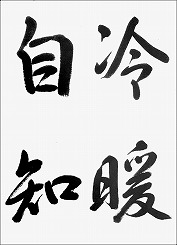 冷暖
自知